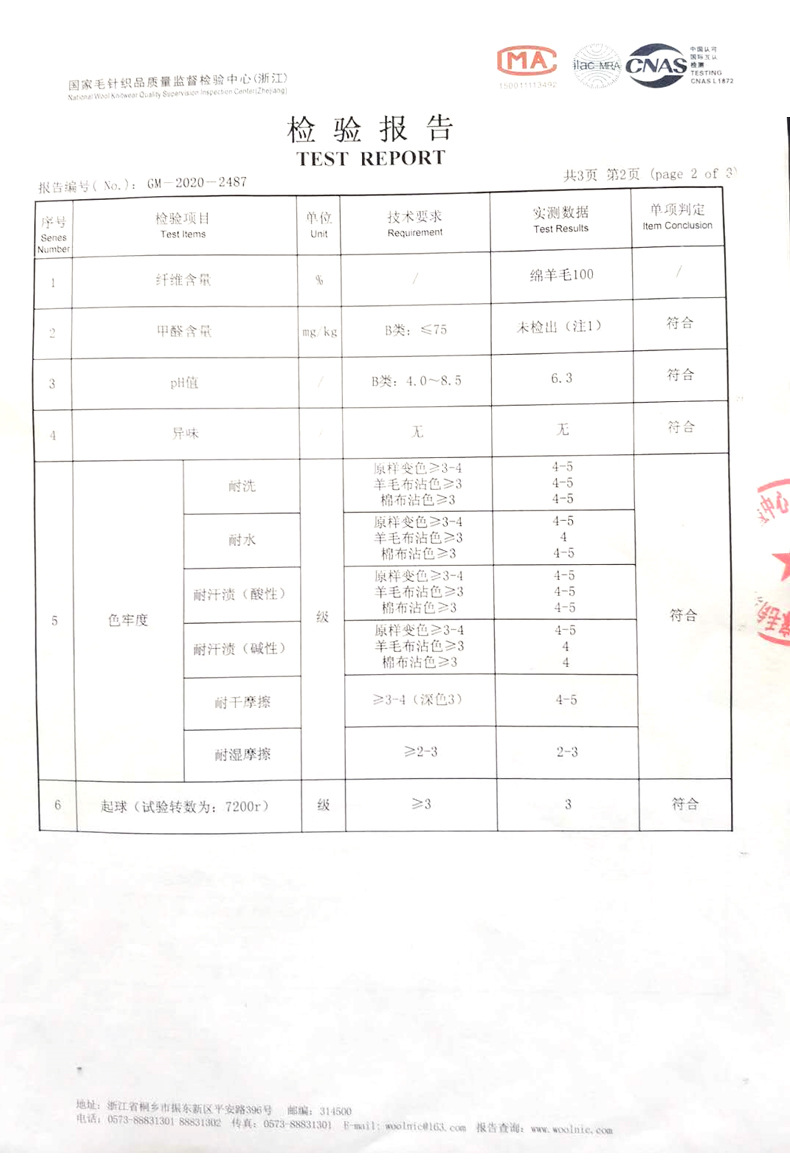 国家毛针织品质量监督检验中心(浙江)
National Wool Knitwear Quality Supervision Inspection Center(Zhejiang)
MA
150011113492
ilac-MRA
CNAS
中国认可
国际互认
检测
TESTING
CNAS L1872
检验报告
TEST REPORT
报告编号( No.): GM-2020-2487
共3页 第2页 (page 2 of 3)
序号 检验项目 单位 技术要求 实测数据 单项判定
Series Number Test Items Unit Requirement Test Results Item Conclusion
1 纤维含量 % / 绵羊毛100 /
2 甲醛含量 mg/kg B类: ≤75 未检出（注1） 符合
3 pH值 / B类: 4.0～8.5 6.3 符合
4 异味 / 无 无 符合
5 色牢度 级 符合
耐洗
原样变色≥3-4 4-5
羊毛布沾色≥3 4-5
棉布沾色≥3 4-5
耐水
原样变色≥3-4 4-5
羊毛布沾色≥3 4
棉布沾色≥3 4-5
耐汗渍（酸性）
原样变色≥3-4 4-5
羊毛布沾色≥3 4-5
棉布沾色≥3 4-5
耐汗渍（碱性）
原样变色≥3-4 4-5
羊毛布沾色≥3 4
棉布沾色≥3 4
耐干摩擦 ≥3-4（深色3） 4-5
耐湿摩擦 ≥2-3 2-3
6 起球（试验转数为: 7200r） 级 ≥3 3 符合
地址: 浙江省桐乡市振东新区平安路396号 邮编: 314500
电话: 0573-88831301 88831302 传真: 0573-88831301 E-mail: woolnic@163.com 报告查询: www.woolnic.com